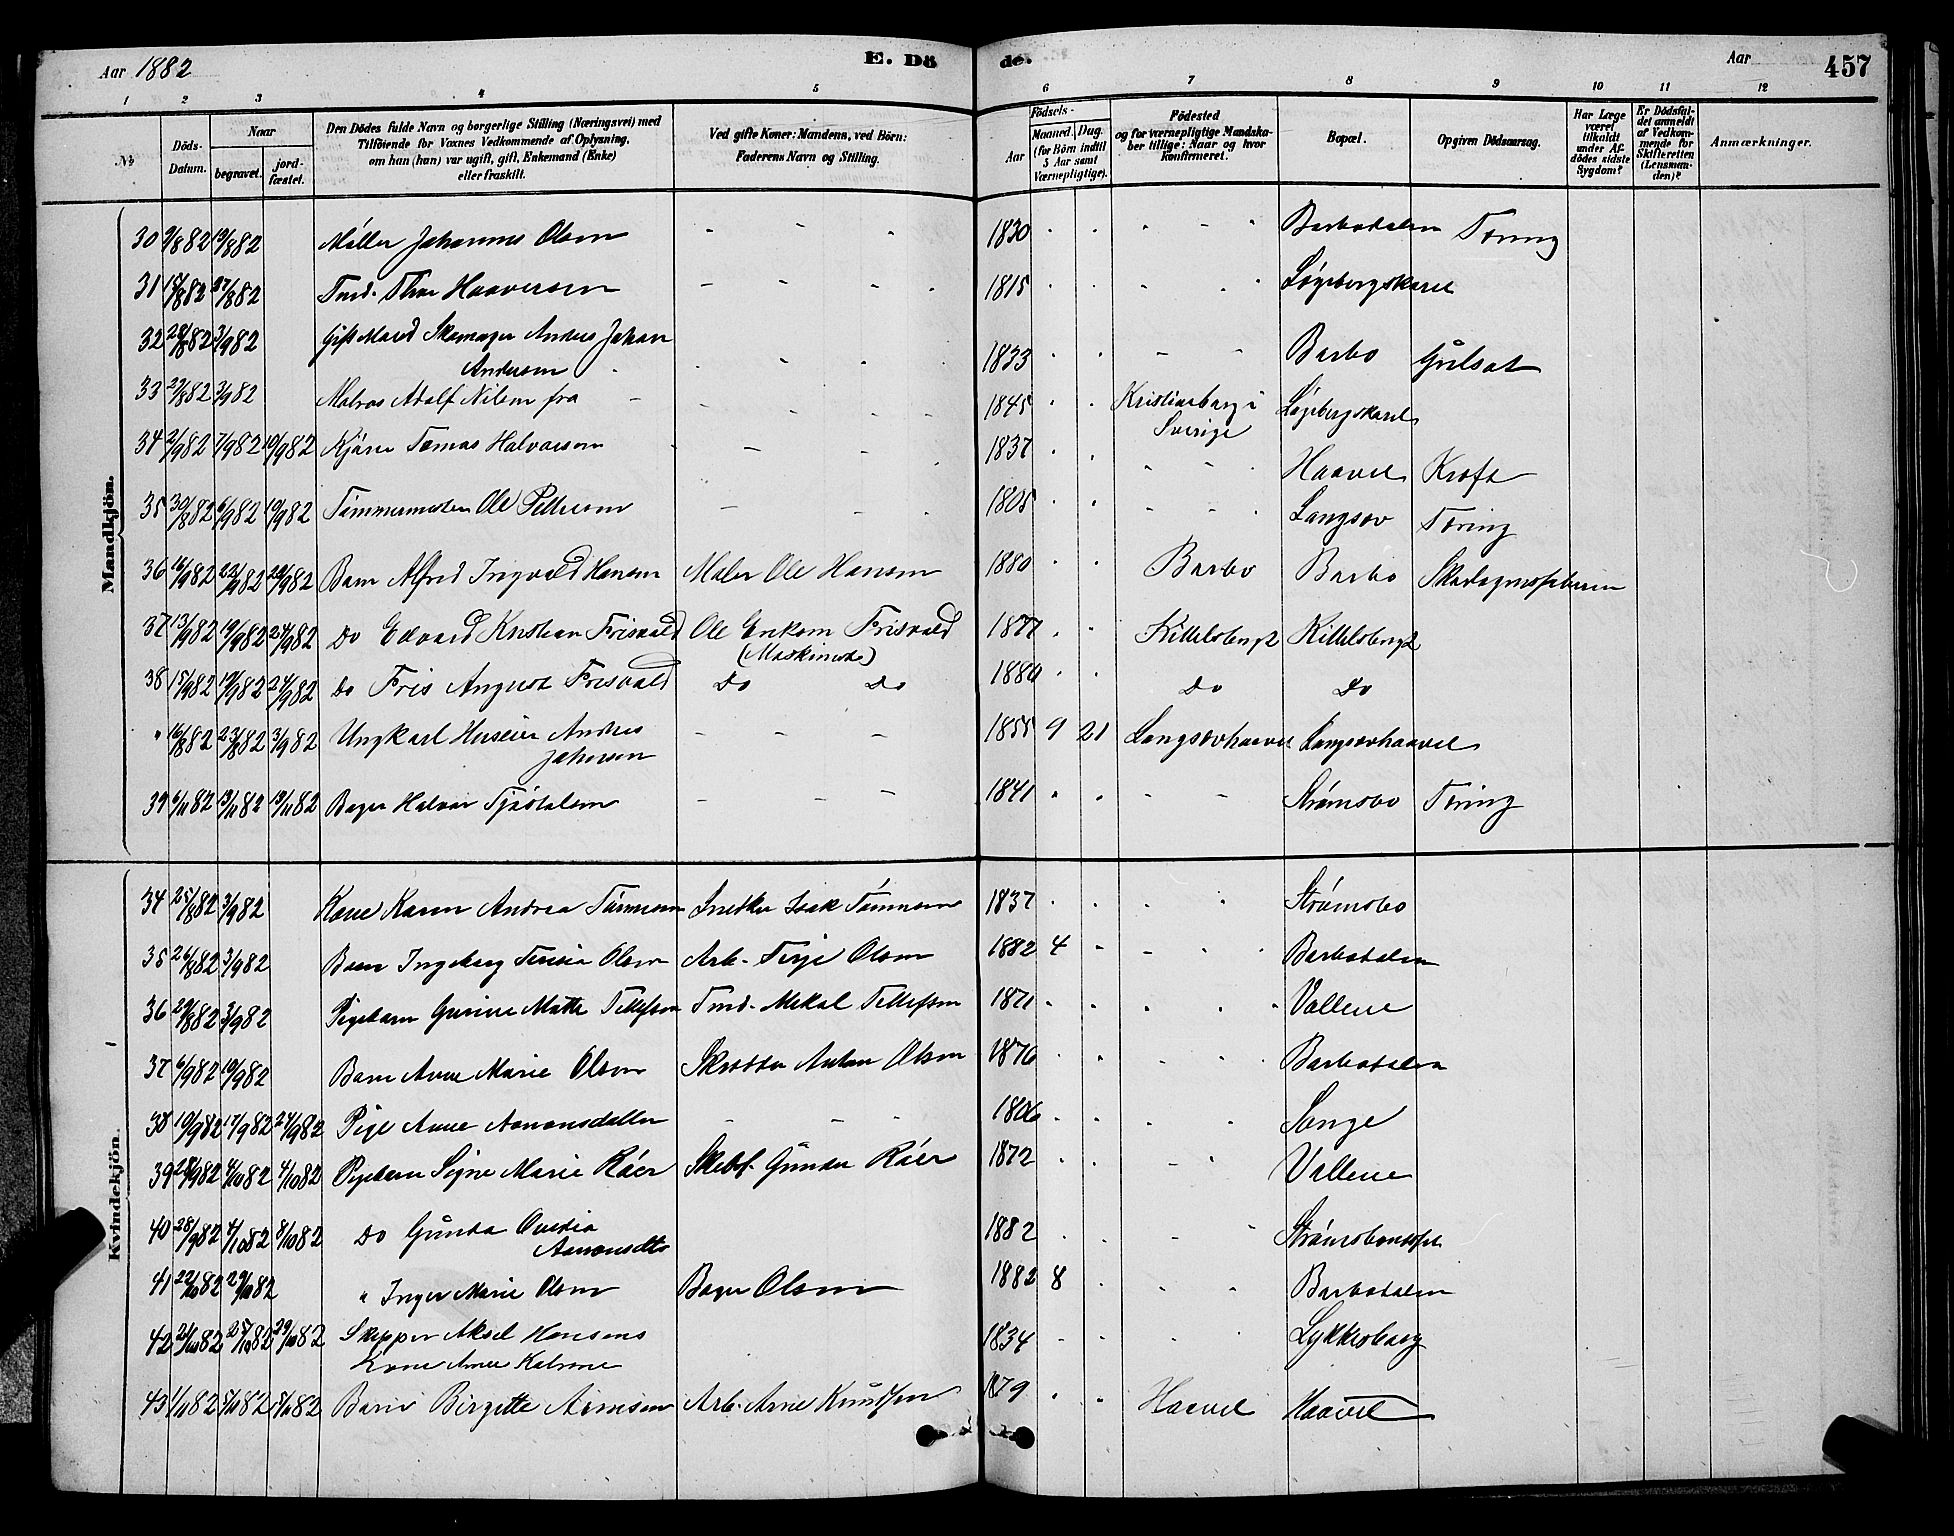 Aar 1882 E. Dö de. Aar 457
1 2 3 4 5 6 7 8 9 10 11 12
No
Döds-Datum.
Naar
begravet. jordfæstet.
Den Dödes fulde Navn og borgerlige Stilling (Næringsvei) med
Tilföiende for Voxnes Vedkommende af Oplysning,
om han (hun) var ugift, gift, Enkemand (Enke)
eller fraskilt.
Ved gifte Koner: Mandens, ved Börn:
Faderens Navn og Stilling.
Födsels-
Aar Maaned. Dag.
(for Börn indtil
5 Aar samt
Værnepligtige).
Födested
og for værnepligtige Mandska-
ber tillige: Naar og hvor
konfirmeret.
Bopæl.
Opgiven Dödsaarsag.
Har Læge
været
tilkaldt
under Af-
dödes sidste
Sygdom?
Er Dödsfal-
det anmeldt
af Vedkom-
mende for
Skifteretten
(Lensman-
den)?
Anmærkninger.
Mandkjön.
30 9/8 82 19/8 82 Møller Johannes Olsen - - - 1830 Barbodalen Tæring
31 18/8 82 27/8 82 Tmd. Thor Haaversen - - - 1815 Løgebergskaret
32 28/8 82 3/9 82 Gift Mand Skomager Anders Johan
Andersen 1833 - - Barbo Gulsot
33 29/8 82 3/9 82 Matros Adolf Nilsen fra - 1845 Kristianberg i Løgebergskaret
Sverige
34 2/9 82 7/9 82 10/9 82 Kjører Tomas Halvorsen - - 1837 Haavet Kræft
35 30/8 82 6/9 82 10/9 82 Tømmermester Ole Pettersen - - 1805 Langsæv Tæring
36 16/9 82 22/9 82 24/9 82 Barn Alfred Ingvald Hansen Maler Ole Hansen 1880 Barbo Barbo Skarlagensfeberen
37 13/9 82 19/9 82 24/9 82 Do Edvard Kristian Frisvold Ole Eriksen Frisvold 1877 Kittelsbugt Kittelsbugt
(Maskinist)
38 15/9 82 19/9 82 24/9 82 Do Fris August Frisvold Do Do 1880 Do Do
" 16/8 82 23/8 82 3/9 82 Ungkarl Huseier Anders - - - 1855 9 21 Langsævhaavet Langsævhaavet
Johnsen
39 6/11 82 13/11 82 19/11 82 Bager Halvor Tjøstolsen - - - 1841 Strømsbo Tæring
Kvindekjön.
34 25/8 82 3/9 82 Kone Karen Andrea Tønnesen Snedker Isak Tønnesen 1837 Strømsbo
35 26/8 82 3/9 82 Barn Ingeborg Teresia Olsen Arb. Terje Olsen 1882 4 Barbodalen
36 29/8 82 3/9 82 Pigebarn Gurine Matte Tellefsen Tmd. Mekal Tellefsen 1871 Vallene
37 6/9 82 10/9 82 Barn Anne Marie Olsen Skrædder Anton Olsen 1876 Barbodalen
38 10/9 82 17/9 82 24/9 82 Pige Anne Aanonsdatter - - - 1806 Songe
39 28/9 82 4/10 82 4/10 82 Pigebarn Signe Marie Røer Skibsf. Gunder Røer 1872 Vallene
40 28/9 82 4/10 82 8/10 82 Do Gunda Ovedia 1882
Aanonsdtr
41 22/10 82 29/10 82 " Inger Marie Olsen Bager Olsen 1882 8 Barbodalen
42 21/10 82 25/10 82 29/10 82 Skipper Aksel Hansens 1834 Lykkesborg
Kone Anne Katrine
43 1/11 82 5/11 82 5/11 82 Barn Birgitte Arnesen Arb. Arne Knudsen 1879 Haavet Haavet